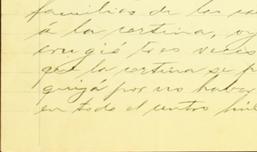 familias de los
á la cortina, oy
crugió tres veces
que la cortina se
quizá por no haber
en todo el centro